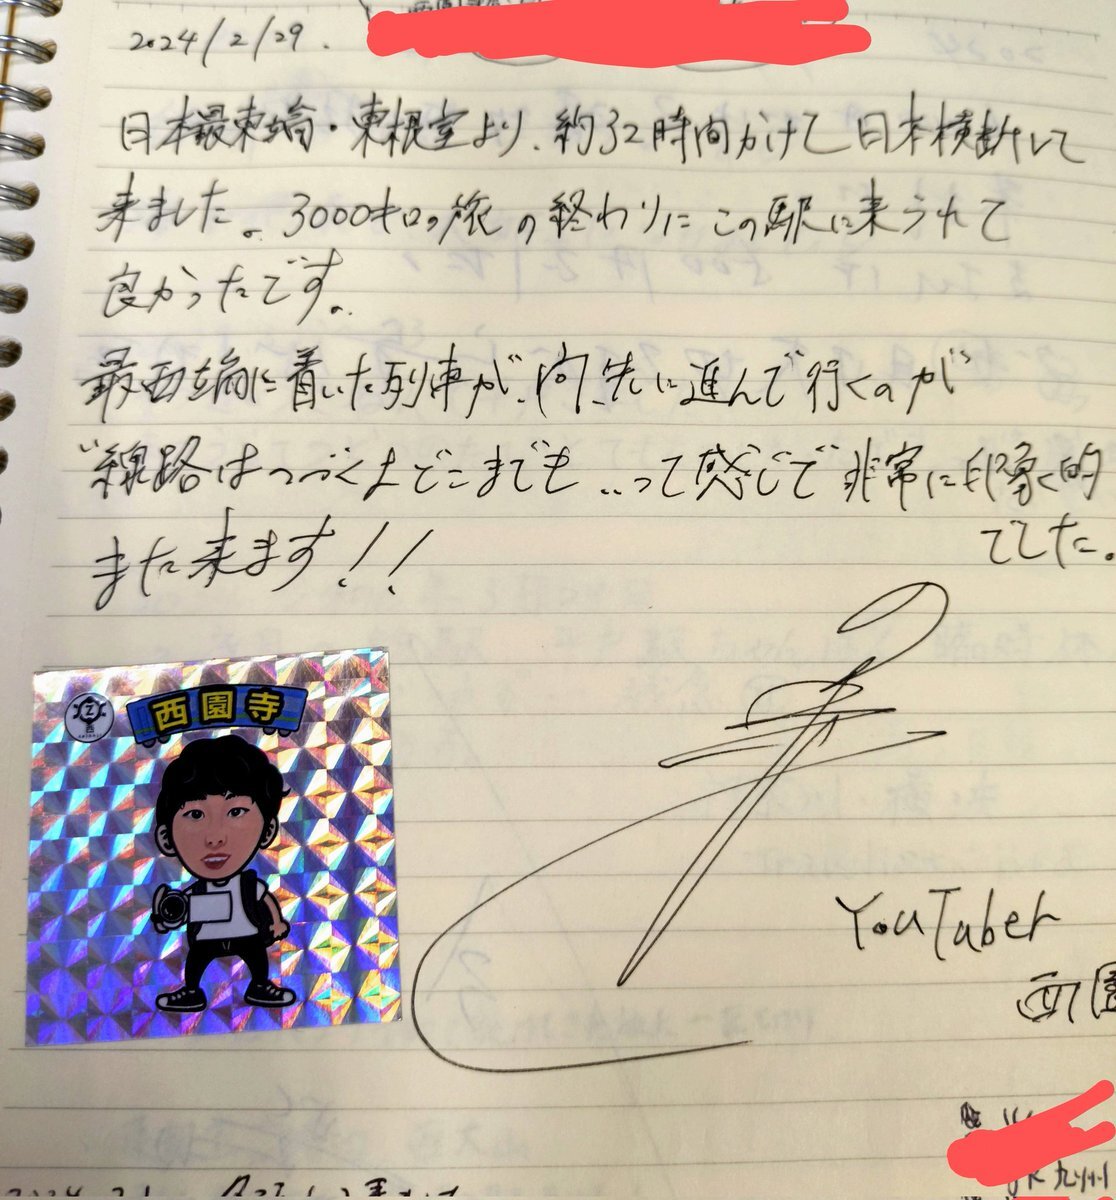 2024/2/29.
日本最東端・東根室より、約32時間かけて日本横断して
来ました。3000キロの旅の終わりにこの駅に来られて
良かったです。
最西端に着いた列車が、向先に進んで行くのが
"線路はつづくよどこまでも"って感じで非常に印象的
でした。
また来ます!!
西園寺
YouTuber
西園
JR九州